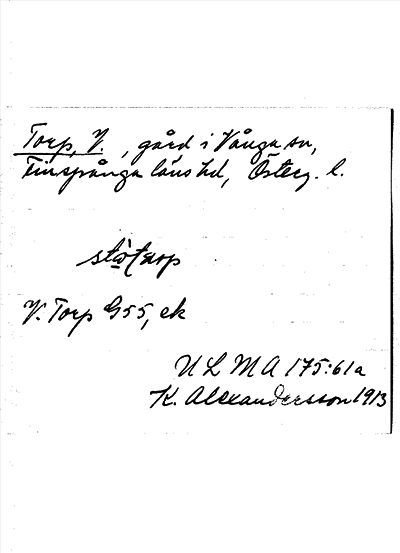 Torp, V. , gård i Vånga sn,
Finspånga läns hd, Österg. l.
V. Torp G55, ek
ULMA 175:61a
K. Alexandersson 1913